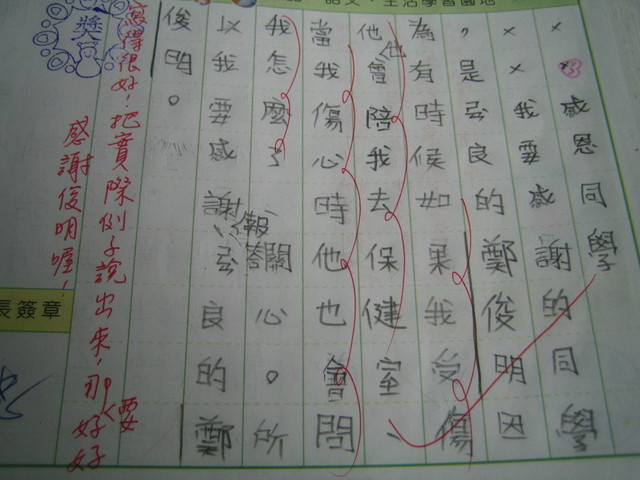 語文·生活學習園地
××感恩同學
×××我要感謝的同學
,是弘良的鄭俊明因
為有時候如果我受傷
他會陪我去保健室、
他
當我傷心時他也會問
我怎麼了(報答)關心。所
以我要感謝弘良的鄭
俊明。
寫得很好!把實際例子說出來,那要好好
感謝俊明喔!
獎
長簽章